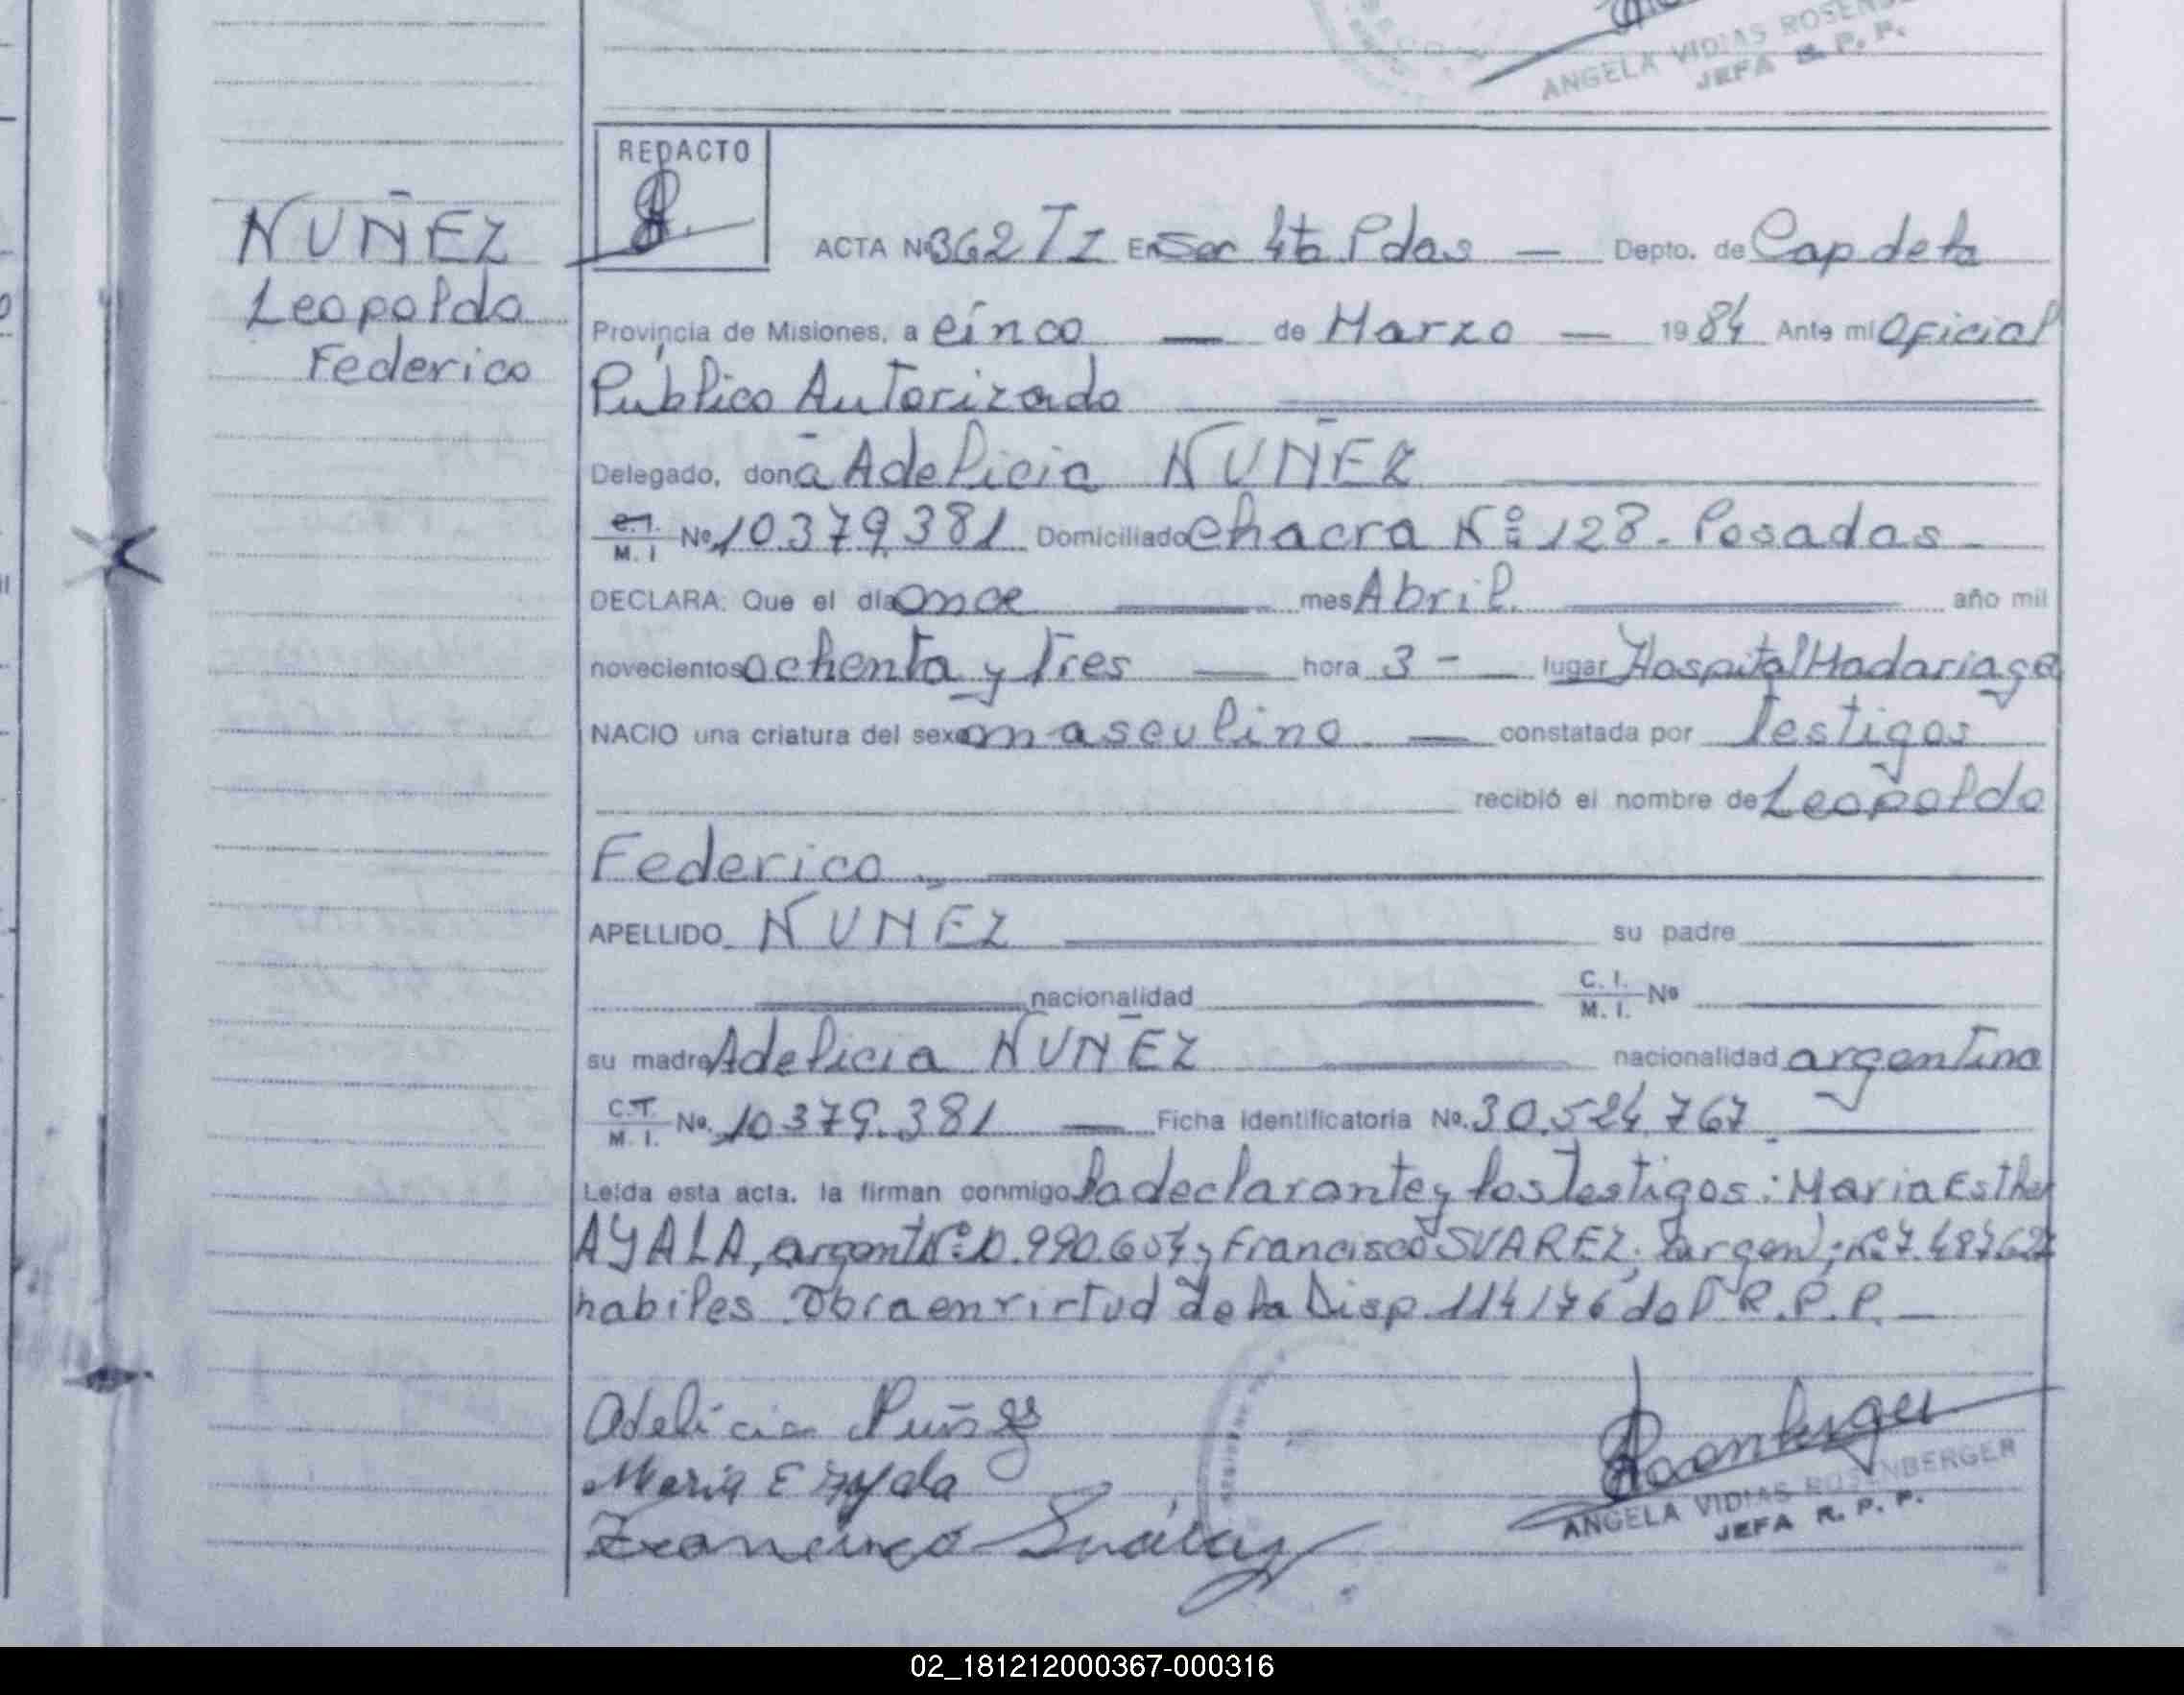 ANGELA VIDIAS
JEFA R. P. P.
REDACTO
NUÑEZ
Leopoldo
Federico
ACTA Nº 362 TI En Sec 4ta Pdas — Depto. de Cap deta
Provincia de Misiones, a cinco — de Marzo — 1984 Ante mí Oficial
Público Autorizado
Delegado, doña Adelicia NUÑEZ
C.I. M. I Nº 10.379.381 Domiciliado Chacra Nº 128 - Posadas -
DECLARA: Que el día once mes Abril. año mil
novecientos ochenta y Tres — hora 3 - lugar Hospital Madariaga
NACIO una criatura del sexo masculino — constatada por Testigos
recibió el nombre de Leopoldo
Federico
APELLIDO NUÑEZ su padre
nacionalidad C. I. M. I. Nº
su madre Adelicia NUÑEZ nacionalidad argentina
C.I. M. I. Nº. 10379.381 — Ficha Identificatoria Nº. 30.524.767
Leída esta acta. la firman conmigo la declarante y los Testigos: Maria Esther
AYALA, argent Nº 10.990.604 y Francisco SUAREZ, argen,
habiles. Obra en virtud de la Disp. 114/76 del R.P.P. —
Adelicia Nuñez
Maria E Ayala
Francisco Suárez
Rosenberger
ANGELA VIDIAS ROSENBERGER
JEFA R. P. P.
02_181212000367-000316